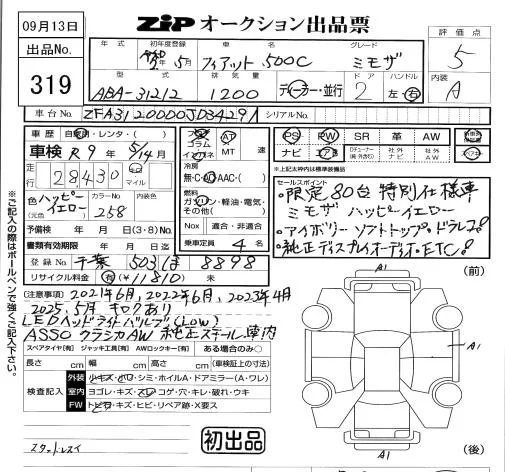 09月13日
出品No.
319
ZIP オークション出品票
年式 初年度登録 車名 グレード
2年5月 フィアット 500C ミモザ
型式 排気量 ドア ハンドル
ABA-31212 1200 ディーラー・並行 2 左・右
評価点
5
内装
A
車台No. ZFA3120000JD34291 シリアルNo.
車歴 自家用・レンタ・( )
車検 R9年5/14月
走行 28,430 km マイル
色(元色) ハッピーイエロー カラーNo. 258 内装色
予備検 年 月(3・8)No.
書類有効期限 年 月 日
登録No. 千葉 503 ほ 8898
リサイクル料金 有(¥11810) 未
コラム AT
インパネ MT 速
冷房
無・C・AC・AAC・( )
燃料
ガソリン・軽油・電気・
その他( )
Nox 適合・非適合
乗車定員 4 名
PS PW SR 革 AW
ナビ エアB
※上記太枠内は標準装備品
セールスポイント
・限定80台 特別仕様車
ミモザ ハッピーイエロー
・アイボリーソフトトップ・ドラレコ!
・純正ディスプレイオーディオ・ETC!
(注意事項) 2021年6月, 2022年6月, 2023年4月
2025.5月 キロクあり
LEDヘッドライトバルブ(Low)
ASSO クラシカAW 純正スチール車内
スペアタイヤ[有] ジャッキ工具[有] AWロックキー[有] ある場合のみ○
長さ cm 幅 cm 高さ cm (車検証上の寸法)
検査記入
外装 少キズ・ヘコ・シミ・ホイルA・ドアミラー(A・ワレ)
室内 ヨゴレ・キズ・スレ・コゲ・穴・キレ・破れ・ウキ
FW トビ石・キズ・ヒビ・リペア跡・X要ス
スタットレスイ
初出品
(前)
A1
A1
A1
(後)
※ご記入の際はボールペンで強くご記入下さい。